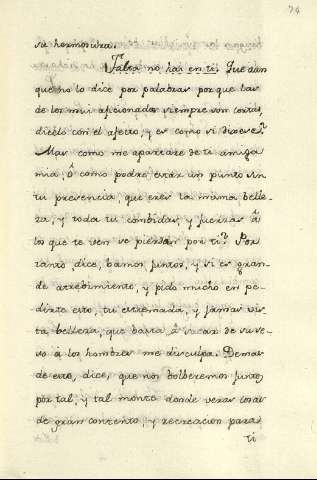 74
su hermosura.
Falta no hai en ti. Que aun
que no lo dice por palabras por que las
de los mui aficionados siempre son cortas,
dicelo con el afecto, y es como si dixese?
Mas como me apartare de ti amiga
mia, ô como podre estàr un punto sin
tu presencia, que eres la misma belle-
za, y toda tu combidas, y fuerzas â
los que te ven se pierdan por ti? Por
tanto, dice, bamos juntos, y si es gran-
de atrebimiento, y pido mucho en pe-
dirte esto, tu estremada, y jamas vis-
ta belleza, que basta â sacar de su se-
so â los hombres me disculpa. Demas
de esto, dice, que nos bolberemos juntos
por tal, y tal monte donde veras cosas
de gran contento, y recreacion para
ti